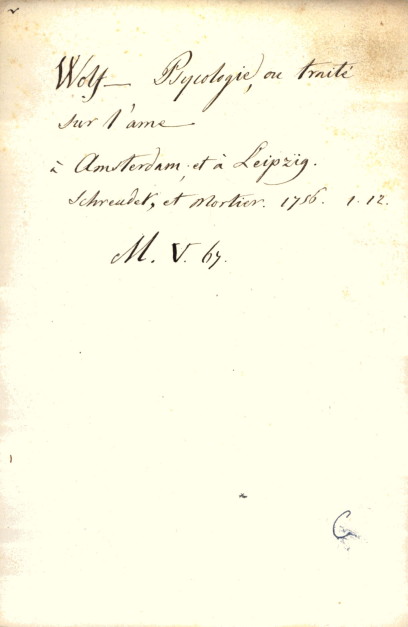 Wolf — Psycologie, ou traité
sur l'ame
à Amsterdam, et à Leipzig.
Schreuder, et Mortier. 1756. 1. 12.
M. V. 67.
C